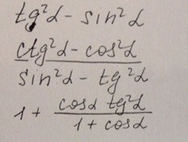 tg²α - sin²α
ctg²α - cos²α
sin²α - tg²α
1 + cosα tg²α / 1 + cosα